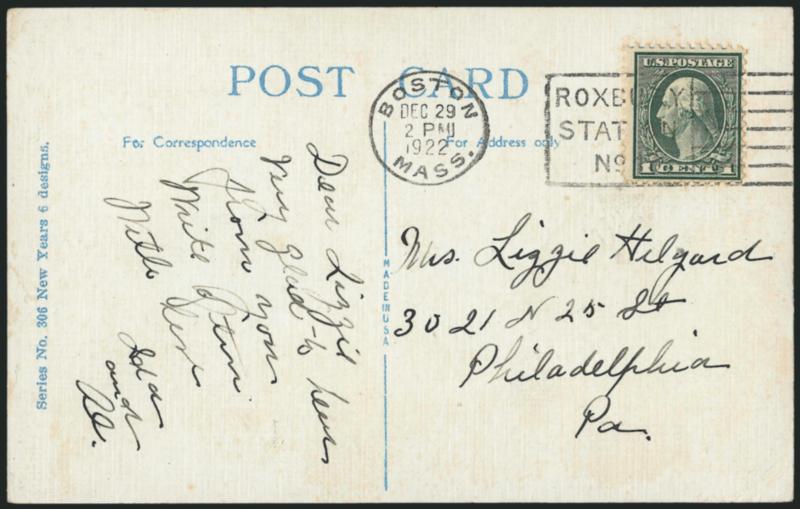 POST CARD
For Correspondence
For Address only
BOSTON
DEC 29
2 PM
1922
MASS.
ROXBURY
STATION
No
U.S. POSTAGE
1 CENT 1
Dear Lizzie
Very glad to hear
from you
Write
With Love
Ida
and
Al.
MADE IN USA
Mrs. Lizzie Hilgard
3021 N 25 St
Philadelphia
Pa.
Series No. 306 New Years 6 designs.